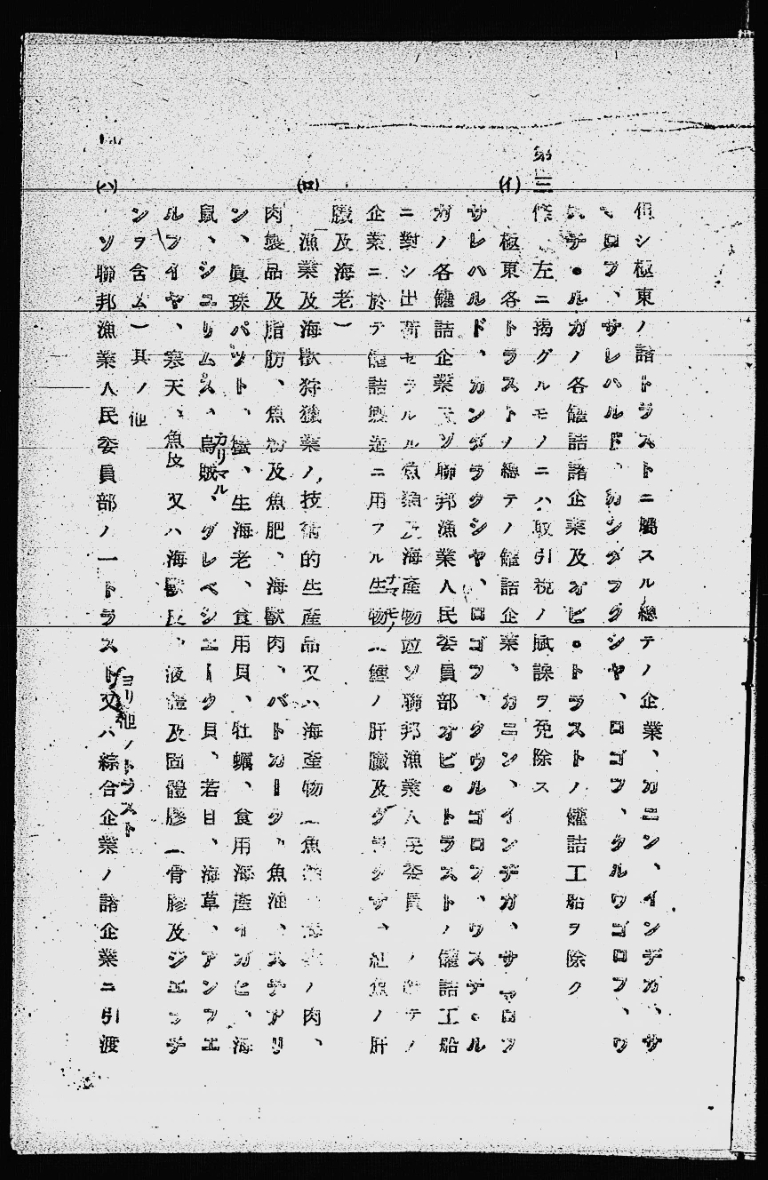 但シ極東ノ諸トラストニ屬スル總テノ企業、カニン、インデガ、サ
マロフ、サレハルド、カンダラクシヤ、ロゴフ、クルワゴロフ、ウ
ステ・ルガノ各罐詰諸企業及オビ・トラストノ罐詰工船ヲ除ク
第三條 左ニ揭グルモノニハ取引稅ノ賦課ヲ免除ス
(イ) 極東各トラストノ總テノ罐詰企業、カニン、インデガ、サマロフ
サレハルド、カンダラクシヤ、ロゴフ、クウルゴロフ、ウステ・ル
ガノ各罐詰企業及ソ聯邦漁業人民委員部オビ・トラストノ罐詰工船
ニ對シ出荷セラルル魚漁及海產物竝ソ聯邦漁業人民委員ノ總テノ
企業ニ於テ罐詰製造ニ用フル生物ナマモノ(鱈ノ肝臟及グラクサ、紅魚ノ肝
臟及海老)
(ロ) 漁業及海獸狩獵業ノ技術的生產品又ハ海產物(魚ノ肉、
肉製品及脂肪、魚粉及魚肥、海獸肉、バトカーク、魚油、ステアリ
ン、眞珠パツト、蠟、生海老、食用貝、牡蠣、食用海產イガヒ、海
鼠、シユリムス、烏賊カリマル、グレベシエーク貝、若目、海草、アンフエ
ルフイヤ、寒天、魚皮又ハ海獸皮、液體及固體膠(骨膠及ジエラチ
ンヲ含ム)其ノ他
(ハ) ソ聯邦漁業人民委員部ノ一トラストヨリ他ノトラスト又ハ綜合企業ノ諸企業ニ引渡